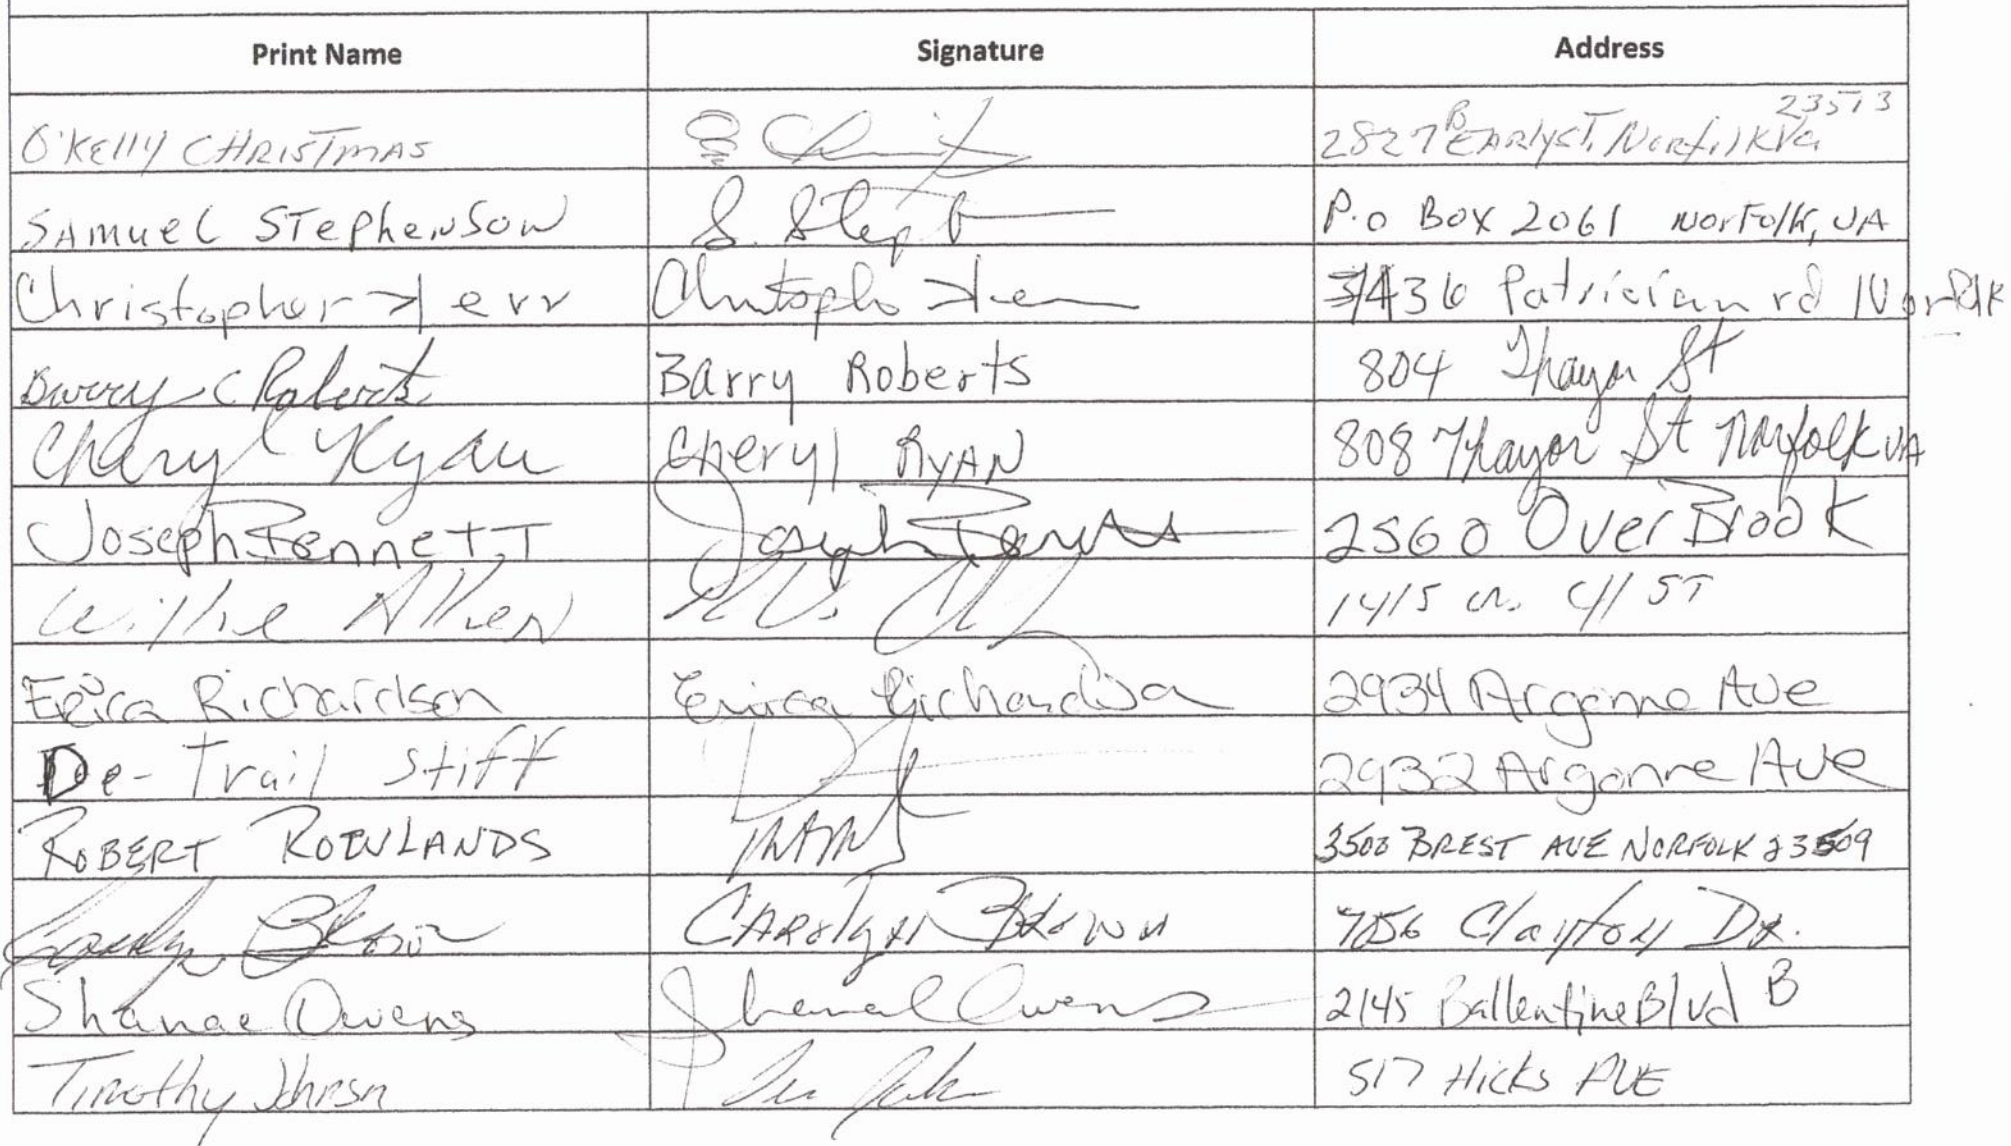 Print Name Signature Address
O'Kelly CHRISTMAS 2827 B EARLY ST. Norfolk Va 23513
SAMUEL STephenSon S. Step P.O BOX 2061 NorFolk, VA
Christopher Kerr Christopher Kerr 3436 Patrician rd Norfolk
Barry C Roberts Barry Roberts 804 Thayor St
Cheryl Ryan Cheryl RYAN 808 Thayor St Norfolk VA
Joseph BenneTT Joseph Bennett 2560 OverBrook
Willie Allen 1415 W. 41 ST
Erica Richardson Erica Richardson 2934 Argonne Ave
De-Trail Stiff 2932 Argonne Ave
ROBERT ROWLANDS 3500 BREST AVE NORFOLK 23509
Carolyn Brown CAROLYN BROWN 7056 Clayton DR.
Shanae Owens Shanae Owens 2145 Ballentine Blvd B
Timothy Johnson 517 Hicks AVE